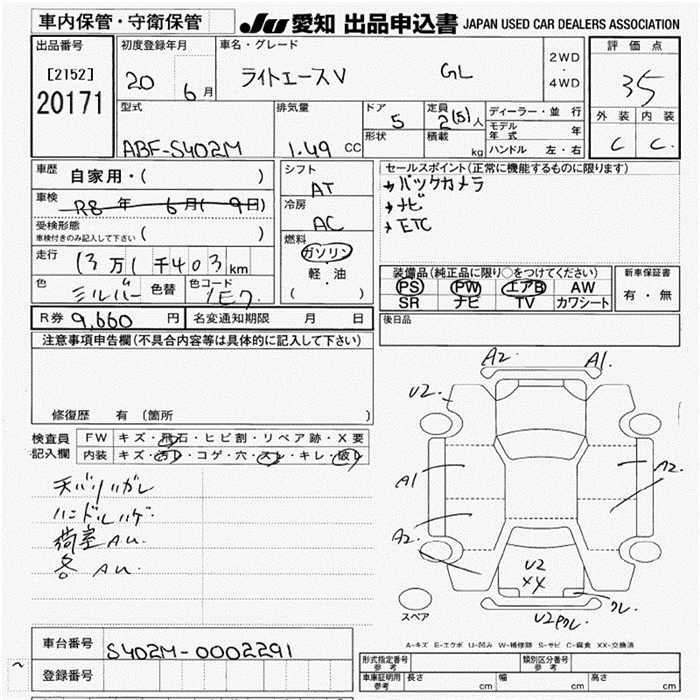 車内保管・守衛保管
JU 愛知 出品申込書 JAPAN USED CAR DEALERS ASSOCIATION
出品番号 初度登録年月 車名・グレード 2WD・4WD 評価点
[2152] 20 6月 ライトエースV GL 35
20171 外装 内装
C C
型式 排気量 ドア 5 定員 2(5)人 ディーラー・並行
ABF-S402M 1.49 CC 形状 積載 kg モデル年式 年
ハンドル 左・右
車歴 自家用・( ) シフト AT セールスポイント(正常に機能するものに限ります)
車検 R8年 6月(9日) 冷房 AC →バックカメラ
受検形態 ( ) →ナビ
車検付きのみ記入して下さい →ETC
走行 13万1千403km 燃料 ガソリン
軽・油
( )
色 シルバー 色替 色コード 1E7
装備品(純正品に限り○をつけてください) 新車保証書
PS PW エアB AW 有・無
SR ナビ TV カワシート
R券 9,660円 名変通知期限 月 日 後日品
注意事項申告欄(不具合内容等は具体的に記入して下さい)
修復歴 有 (箇所 )
検査員記入欄 FW キズ・飛石・ヒビ割・リペア跡・X要
内装 キズ・汚レ・コゲ・穴・スレ・キレ・破レ
天バリハガレ
ハンドルハゲ
荷室AU.
各AU.
A2. A1.
U2.
A1 A2.
A2.
U2
XX
クレ.
U2Pクレ.
スペア
A-キズ E-エクボ U-凹み W-補修跡 S-サビ C-腐食 XX-交換済
車台番号 S402M-0002291
登録番号
形式指定番号 参考 類別区分番号 参考
車庫証明用 参考 長さ cm 幅 cm 高さ cm